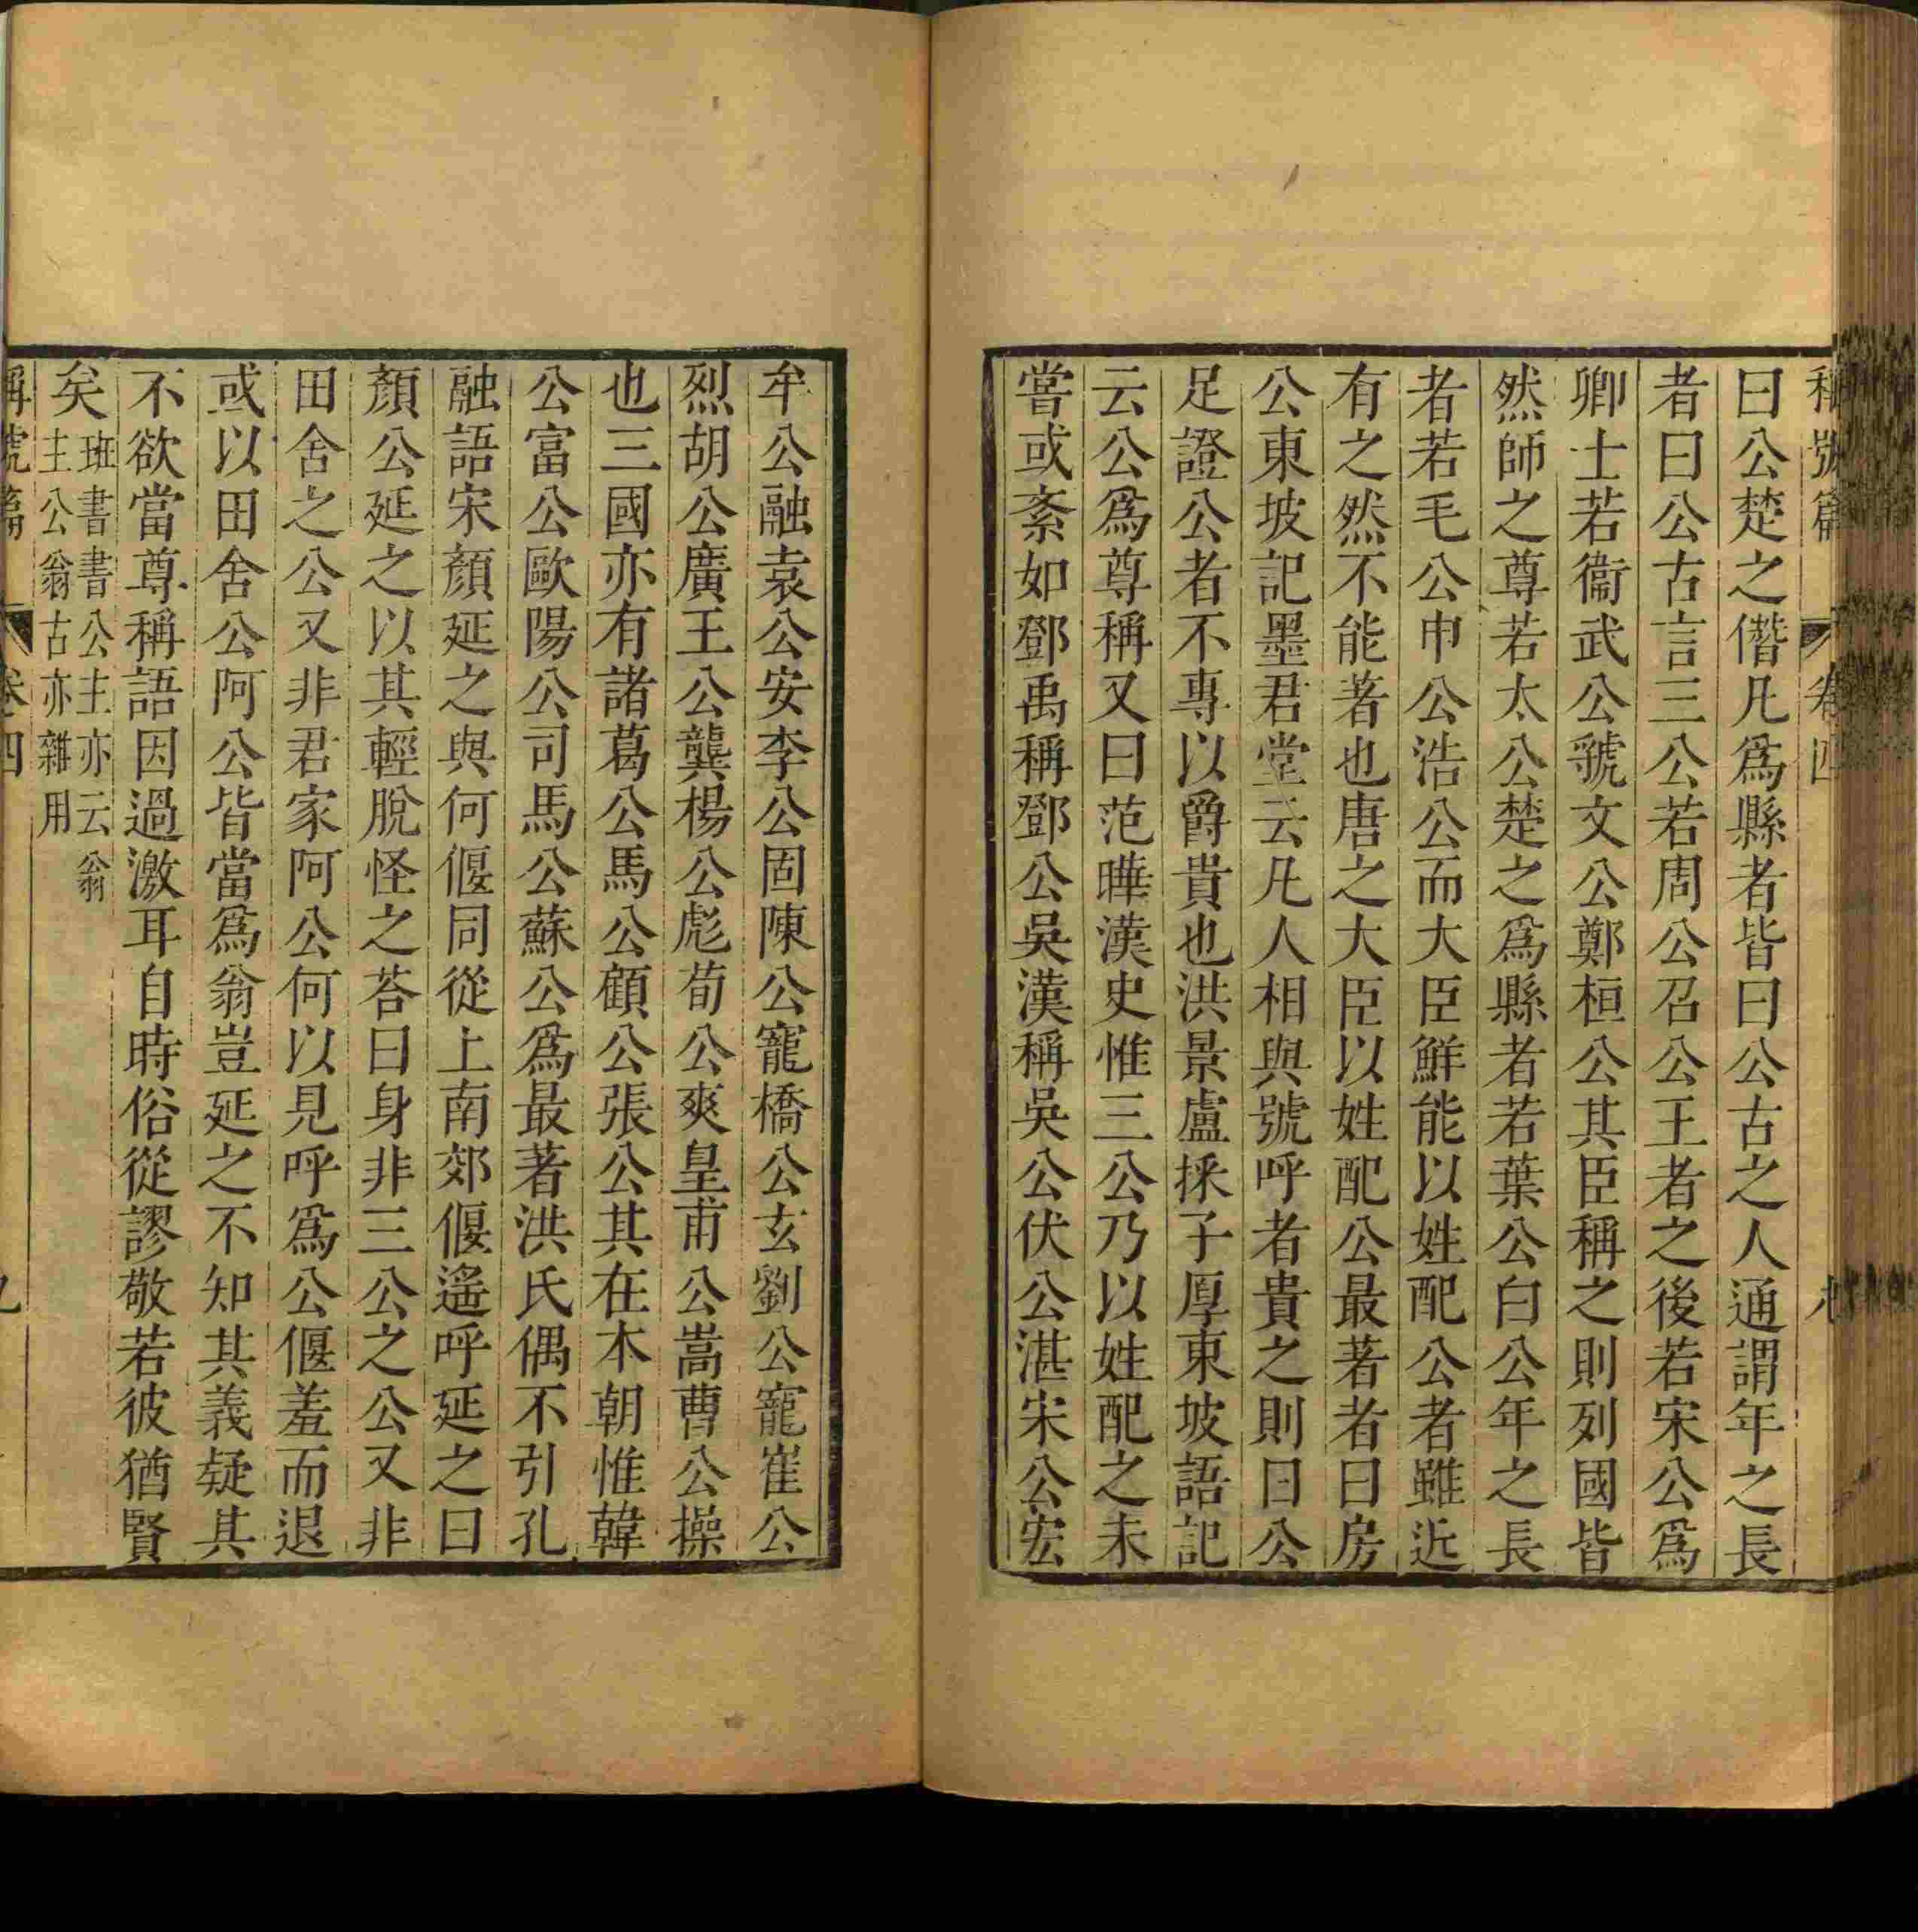 稱號篇 卷四 九
曰公楚之僭凡爲縣者皆曰公古之人通謂年之長
者曰公古言三公若周公召公王者之後若宋公爲
卿士若衞武公虢文公鄭桓公其臣稱之則列國皆
然師之尊若太公楚之爲縣者若葉公白公年之長
者若毛公申公浩公而大臣鮮能以姓配公者雖近
有之然不能著也唐之大臣以姓配公最著者曰房
公東坡記墨君堂云凡人相與號呼者貴之則曰公
足證公者不專以爵貴也洪景盧採子厚東坡語記
云公爲尊稱又曰范曄漢史惟三公乃以姓配之未
嘗或紊如鄧禹稱鄧公吳漢稱吳公伏公湛宋公宏
牟公融袁公安李公固陳公寵橋公玄劉公寵崔公
烈胡公廣王公龔楊公彪荀公爽皇甫公嵩曹公操
也三國亦有諸葛公馬公顧公張公其在本朝惟韓
公富公歐陽公司馬公蘇公爲最著洪氏偶不引孔
融語宋顏延之與何偃同從上南郊偃遙呼延之曰
顏公延之以其輕脫怪之荅曰身非三公之公又非
田舍之公又非君家阿公何以見呼爲公偃羞而退
或以田舍公阿公皆當爲翁豈延之不知其義疑其
不欲當尊稱語因過激耳自時俗從謬敬若彼猶賢
矣班書書公主亦云翁主公翁古亦雜用
稱號篇 卷四 九